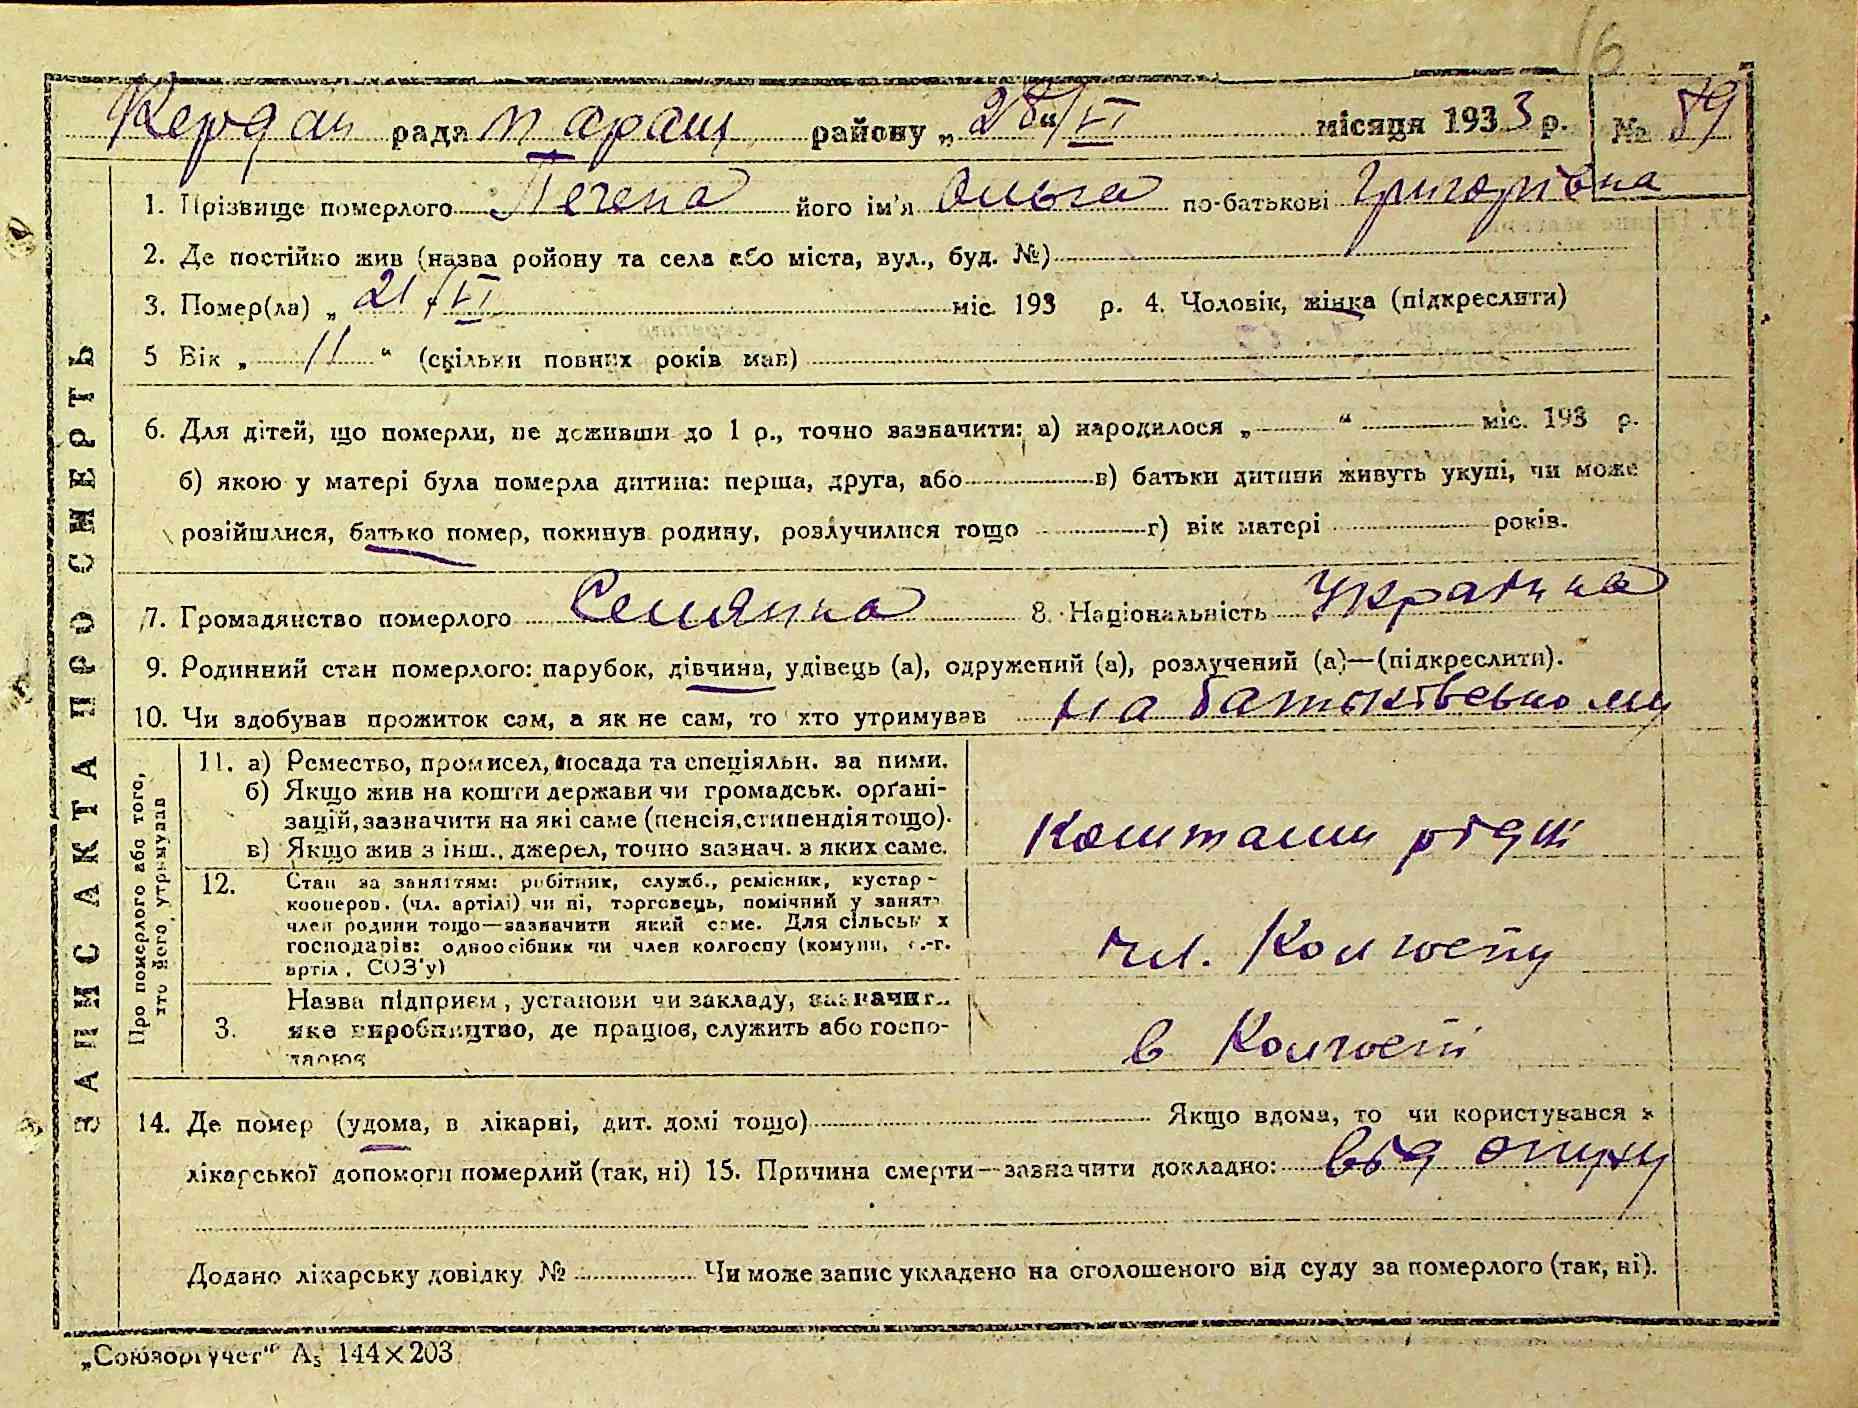 16
Кердан рада Таращ району „28“/VI місяця 1933 р. № 89
ЗАПИС АКТА ПРО СМЕРТЬ
1. Прізвище померлого Печена його ім'я Ольга по-батькові Григорівна
2. Де постійно жив (назва ройону та села або міста, вул., буд. №)
3. Помер(ла) „ 21/VI міс. 193 р. 4. Чоловік, жінка (підкреслити)
5 Вік „ 11 “ (скільки повних років мав)
6. Для дітей, що померли, не доживши до 1 р., точно зазначити: а) народилося „ “ міс. 193 р.
б) якою у матері була померла дитина: перша, друга, або в) батьки дитини живуть укупі, чи може
розійшлися, батько помер, покинув родину, розлучилися тощо г) вік матері років.
7. Громадянство померлого Селянка 8. Національність Україінка
9. Родинний стан померлого: парубок, дівчина, удівець (а), одружений (а), розлучений (а)—(підкреслити).
10. Чи здобував прожиток сам, а як не сам, то хто утримував на батьківському
Про померлого або того, хто його утримував
11. а) Ремество, промисел, посада та спеціяльн. за ними.
б) Якщо жив на кошти держави чи громадськ. орґані-
зацій, зазначити на які саме (пенсія, стипендія тощо).
в) Якщо жив з інш., джерел, точно зазнач. з яких саме.
коштами
12. Стан за заняттям: робітник, служб., ремісник, кустар-
кооперов. (чл. артілі) чи ні, торговець, помічний у занят.
член родини тощо—зазначити який саме. Для сільськ х
господарів: одноосібник чи член колгоспу (комуни, с.-г.
артіл, СОЗ'у)
чл. Колгоспу
3. Назва підприєм, установи чи закладу, зазначит.,
яке виробництво, де працює, служить або госпо-
дарює
в Колгоспі
14. Де помер (удома, в лікарні, дит. домі тощо) Якщо вдома, то чи користувався з
лікарської допомоги померлий (так, ні) 15. Причина смерти—зазначити докладно: від опуху
Додано лікарську довідку № Чи може запис укладено на оголошеного від суду за померлого (так, ні).
„Союзоргучет“ А₅ 144×203